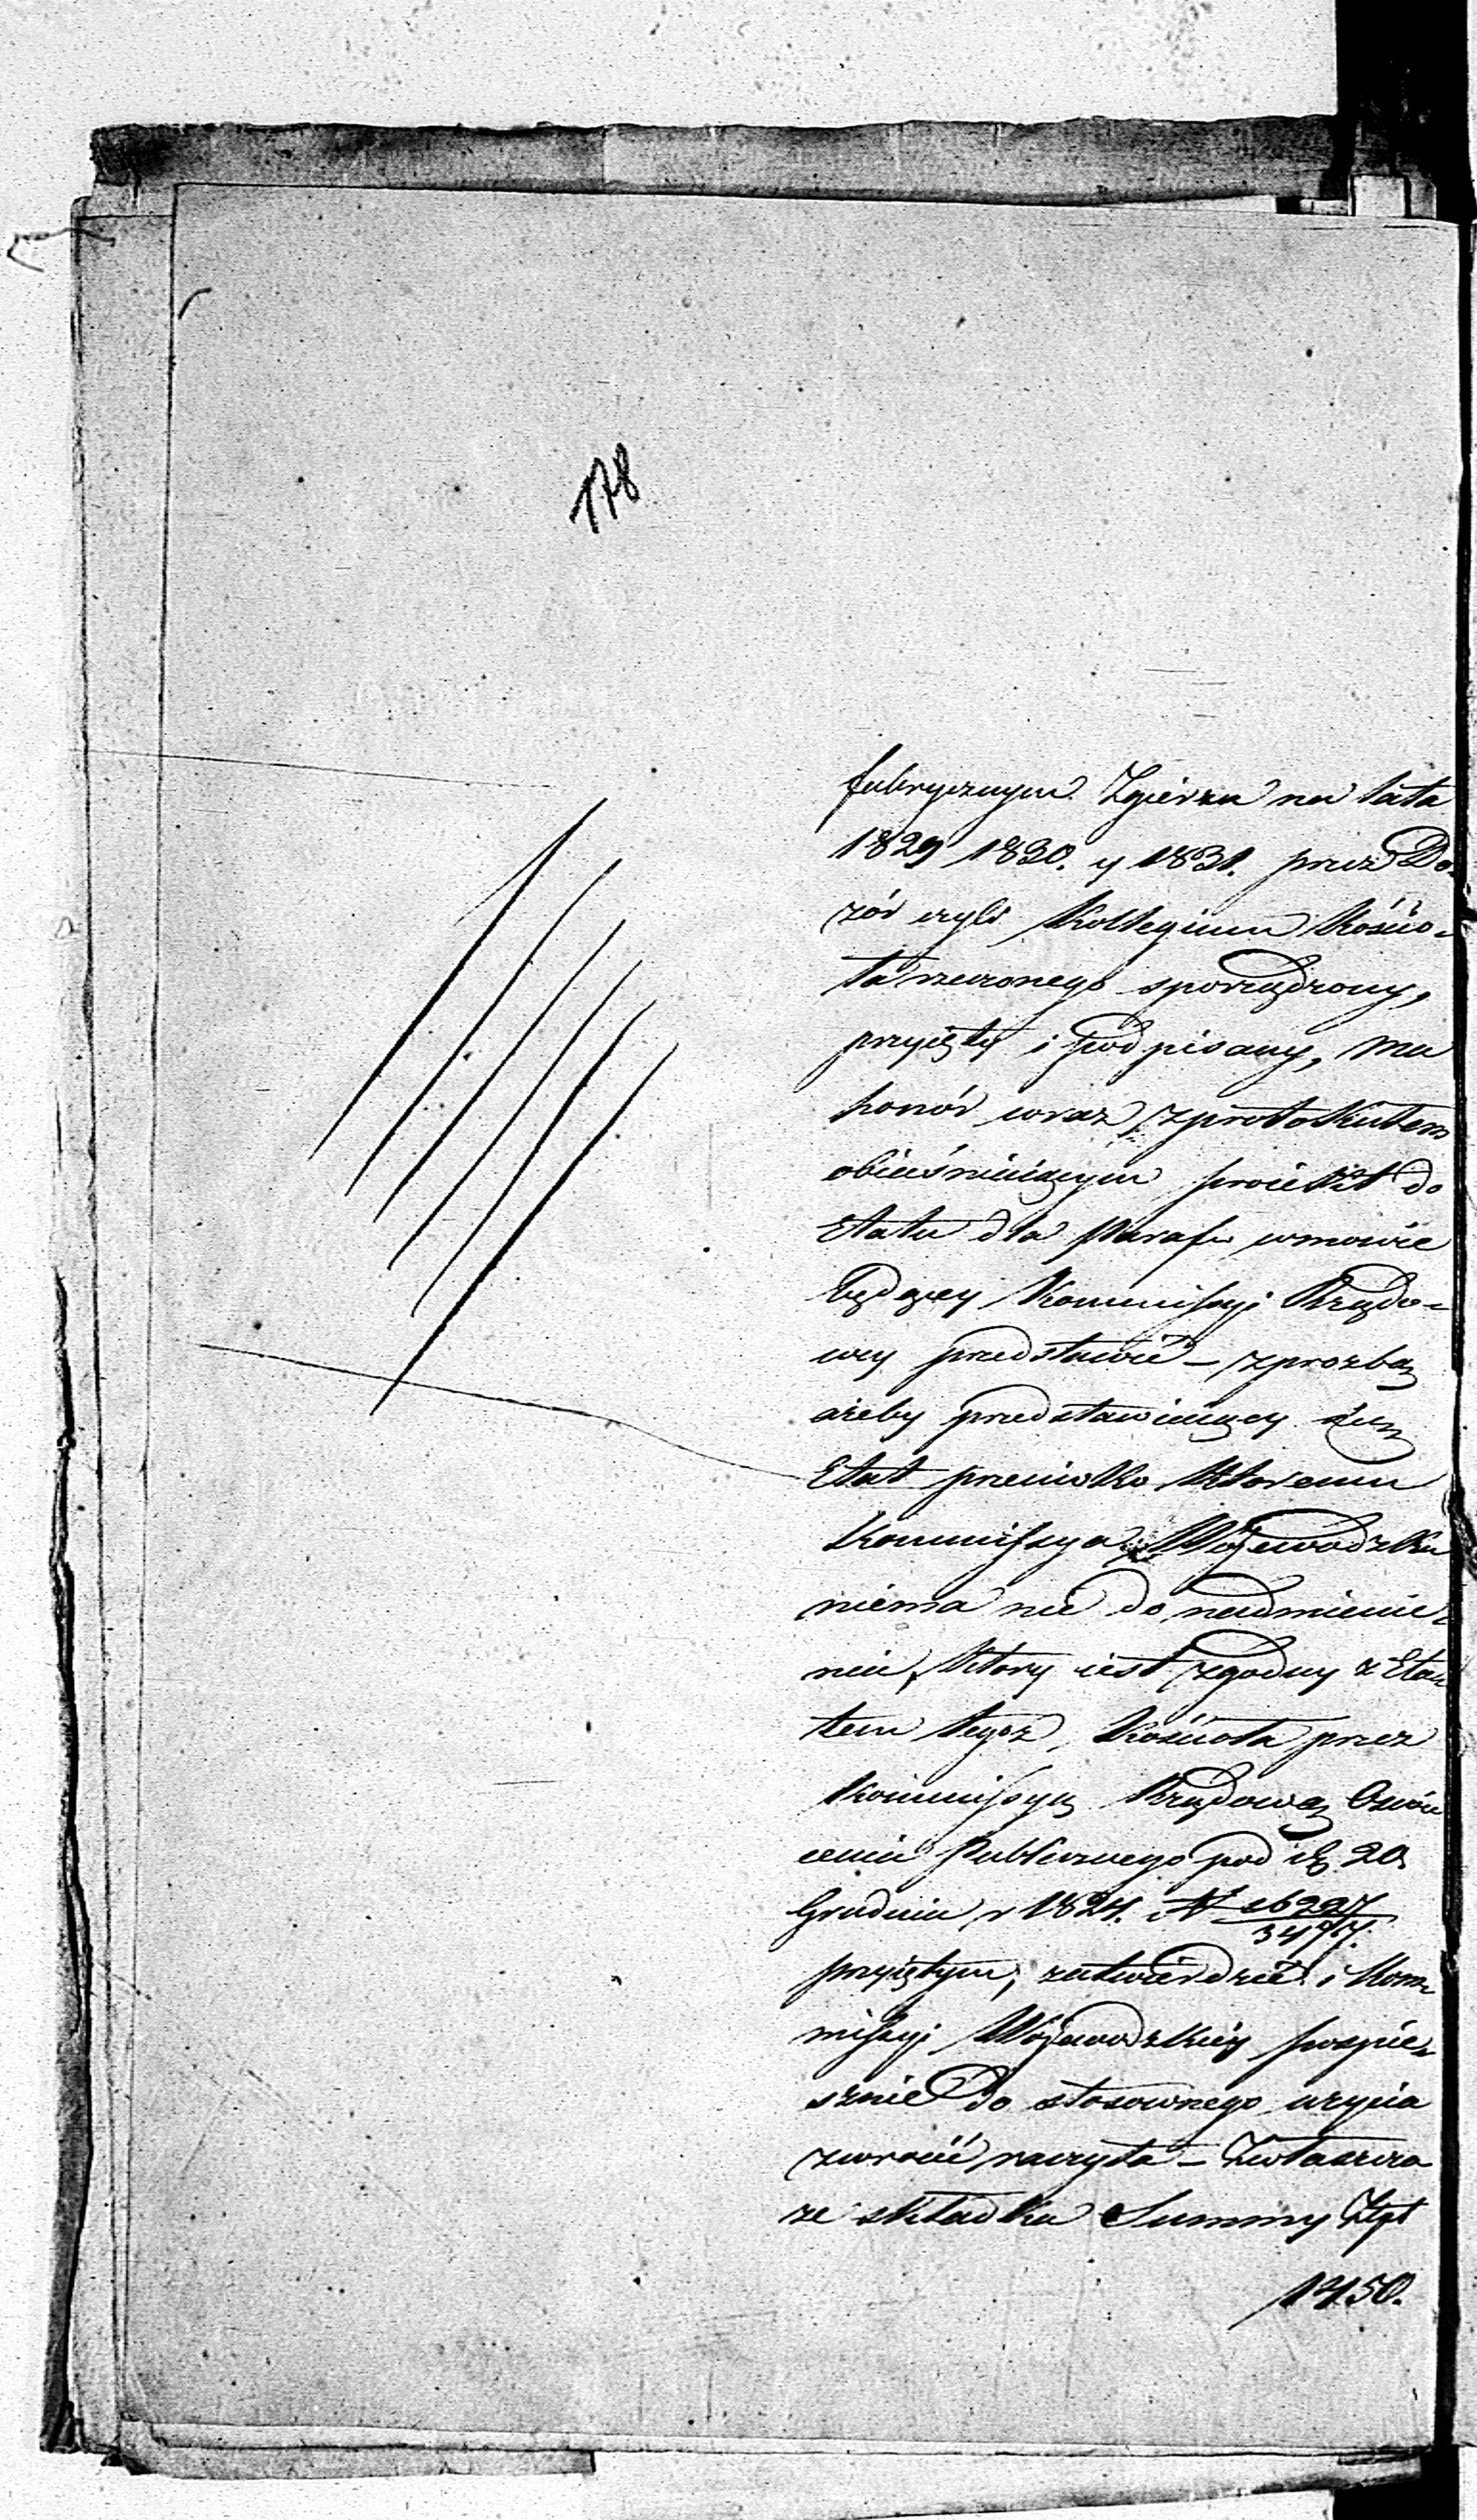 178
fabrycznym Zgierzu na lata
1829 1830. y 1831. przez Do-
zór czyli Kollegium Kościo-
ła rzeczonego sporządzony,
przyięty i podpisany, ma
honór wraz z protokułem
obiaśniaiącym proiekt do
Etatu dla Parafii w mowie
będącey Kommissyi Rządo-
wey przedstawić – z prozbą
ażeby przedstawiaiący się
Etat przeciwko któremu
Kommissya Wojewodzka
niema nic do nadmienie-
nia, który iest zgodny z Eta-
tem tegoż Kościoła przez
Kommissyą Rządową Oświe-
cenia Publicznego pod dn 20
Grudnia r 1824. N 16227/3477.
przyiętym, zatwierdzić i Kom-
missyi Wojewodzkiey pospie-
sznie do stosownego użycia
zwrócić raczyła – Zwłaszcza
że składka Summy Złp
1450.